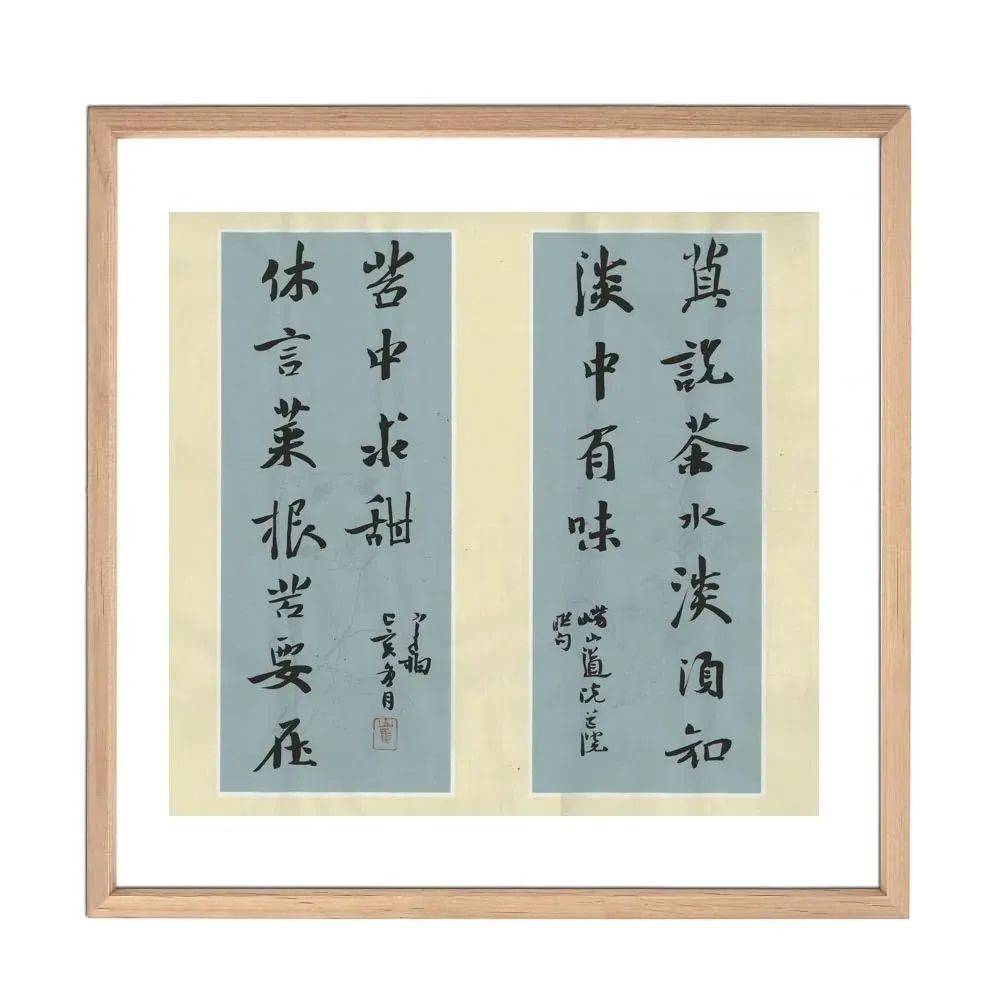 莫說茶水淡須知
淡中有味
嶗山道院
聯句
休言菜根苦要在
苦中求甜
己亥冬月